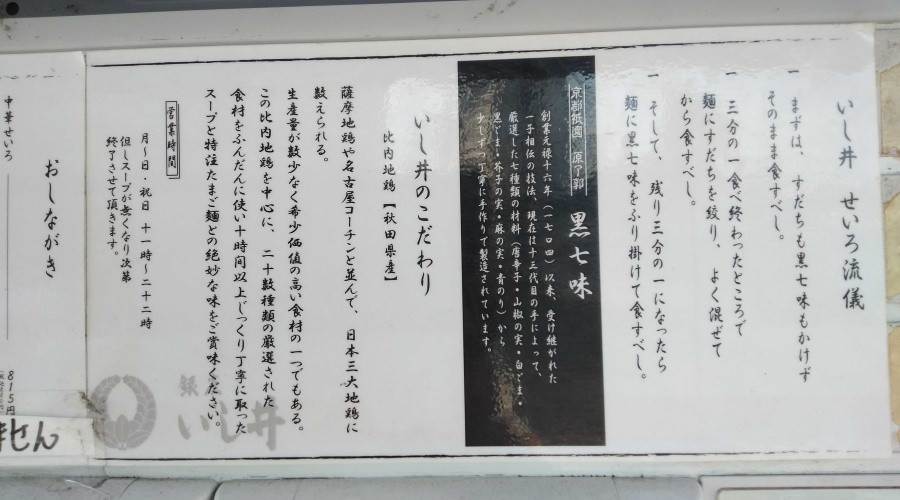 いし井 せいろ流儀
一 まずは、すだちも黒七味もかけず
そのまま食すべし。
一 三分の一食べ終わったところで
麺にすだちを絞り、よく混ぜて
から食すべし。
一 そして、残り三分の一になったら
麺に黒七味をふり掛けて食すべし。
京都祇園 原了郭 黒七味
創業元禄十六年(一七〇四)以来、受け継がれた
一子相伝の技法、現在は十三代目の手によって、
厳選した七種類の材料(唐辛子・山椒の実・白ごま・
黒ごま・芥子の実・麻の実・青のり)から
少しずつ丁寧に手作りで製造されています。
いし井のこだわり
比内地鶏【秋田県産】
薩摩地鶏や名古屋コーチンと並んで、日本三大地鶏に
数えられる。
生産量が数少なく希少価値の高い食材の一つでもある。
この比内地鶏を中心に、二十数種類の厳選された
食材をふんだんに使い十時間以上じっくり丁寧に取った
スープと特注たまご麺との絶妙な味をご賞味ください。
営業時間
月〜日・祝日 十一時〜二十二時
但しスープが無くなり次第
終了させて頂きます。
銀
いし井
おしながき
中華せいろ
815円
せん